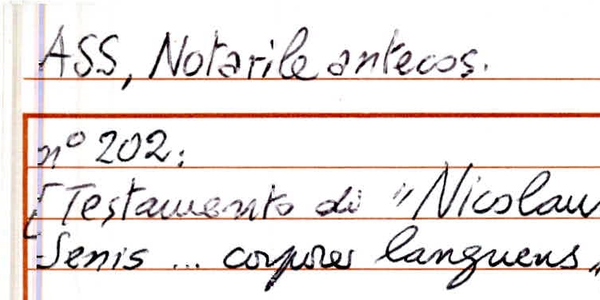 ASS, Notarile antecos.
n° 202:
[Testamento di "Nicolaus
Senis ... corpore languens"